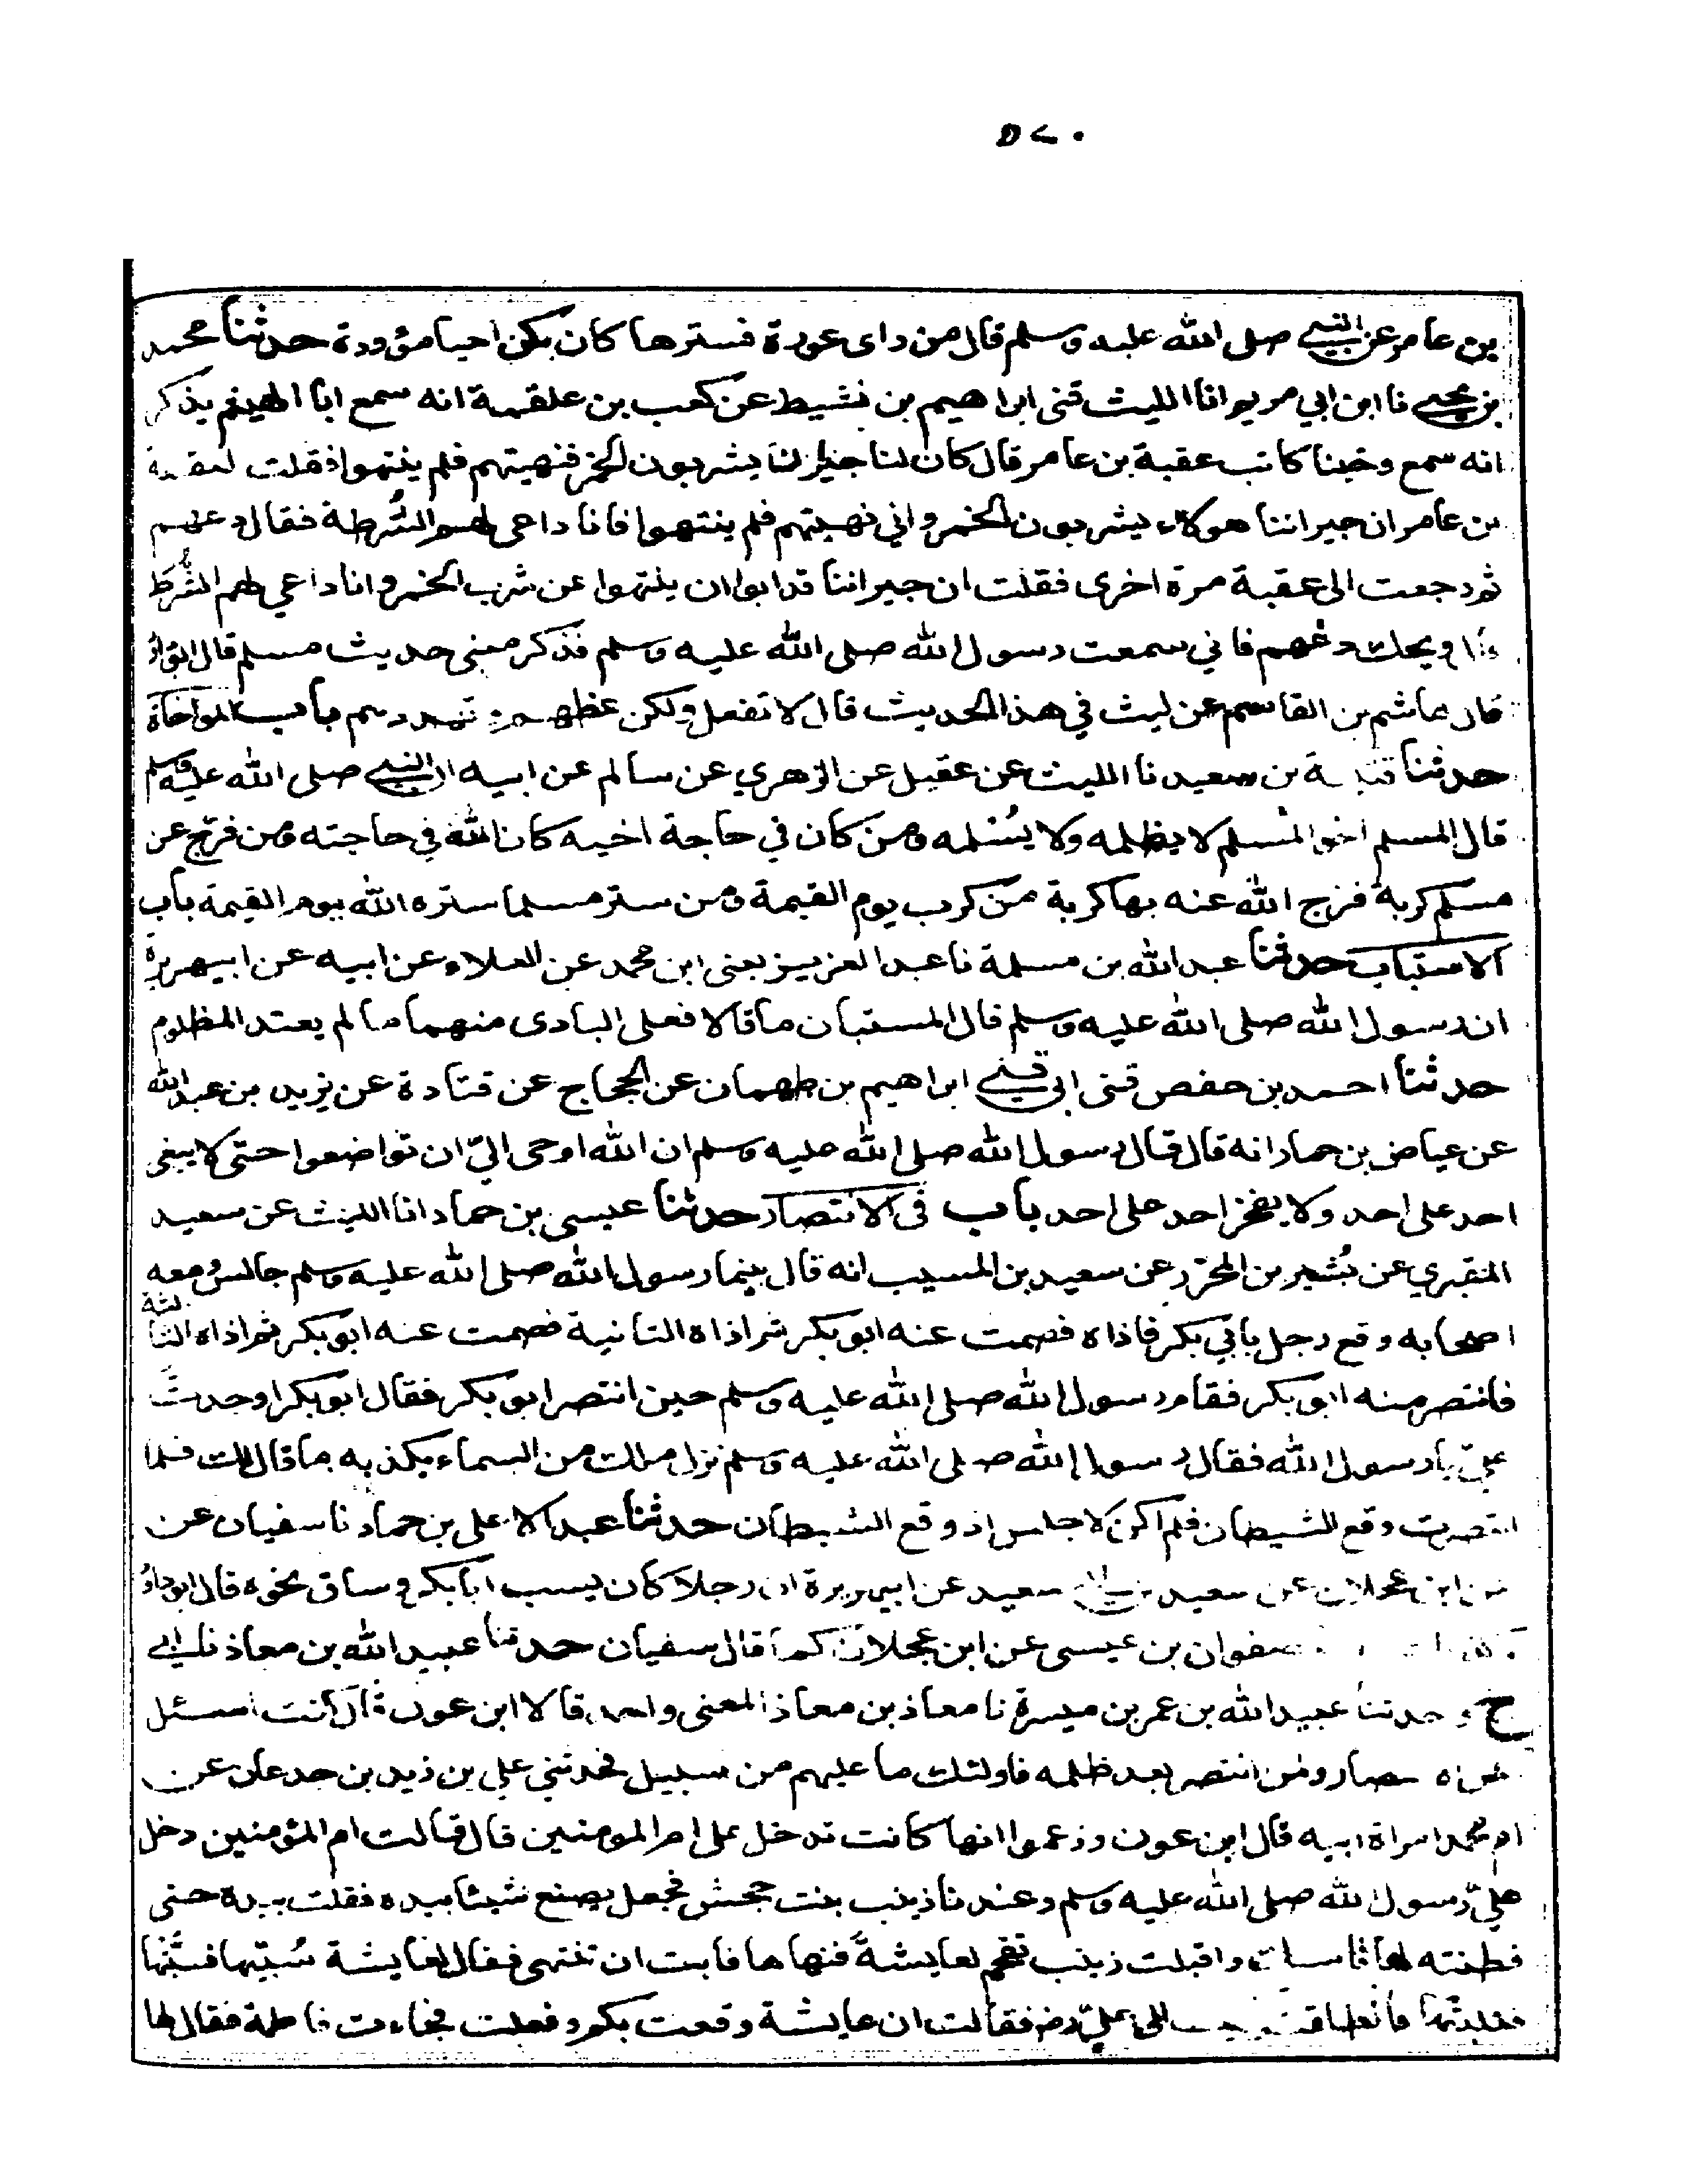 ٥٧٠
بن عامر عن النبي صلى الله عليه وسلم قال من راى عورة فسترها كان كمن احيا مؤودة حدثنا محمد
بن يحيى نا ابن ابي مريم انا الليث ثنى ابراهيم بن نشيط عن كعب بن علقمة انه سمع ابا الهيثم يذكر
انه سمع دخينا كاتب عقبة بن عامر قال كان لنا جيران لنا يشربون الخمر فنهيتهم فلم ينتهوا فقلت لعقبة
بن عامر ان جيراننا هولاء يشربون الخمر واني نهيتهم فلم ينتهوا فانا داعى لهم الشُرطة فقال دعهم
ثم رجعت الى عقبة مرة اخرى فقلت ان جيراننا قد ابوا ان ينتهوا عن شرب الخمر وانا داعي لهم الشُرَط
ويحك دعهم فاني سمعت رسول الله صلى الله عليه وسلم فذكر معنى حديث مسلم قال ابو داؤد
قال هاشم بن القاسم عن ليث في هذا الحديث قال لا تفعل ولكن عظهم وتهددهم باب المواخاة
حدثنا قتيبة بن سعيد نا الليث عن عقيل عن الزهري عن سالم عن ابيه ان النبي صلى الله عليه وسلم
قال المسلم اخو المسلم لا يظلمه ولا يُسْلمه ومن كان في حاجة اخيه كان الله في حاجته ومن فرّج عن
مسلم كربة فرج الله عنه بها كربة من كرب يوم القيمة ومن ستر مسلما ستره الله يوم القيمة باب
الاستباب حدثنا عبد الله بن مسلمة نا عبد العزيز يعنى ابن محمد عن العلاء عن ابيه عن ابيهريرة
ان رسول الله صلى الله عليه وسلم قال المستبان ما قالا فعلى البادى منهما ما لم يعتد المظلوم
حدثنا احمد بن حفص ثنى ابي ثني ابراهيم بن طهمان عن الحجاج عن قتادة عن يزيد بن عبد الله
عن عياض بن حمار انه قال قال رسول الله صلى الله عليه وسلم ان الله اوحى اليّ ان تواضعوا حتى لا يبغى
احد على احد ولا يفخر احد على احد باب في الانتصار حدثنا عيسى بن حماد انا الليث عن سعيد
المقبري عن بُشير بن المحرّر عن سعيد بن المسيب انه قال بينما رسول الله صلى الله عليه وسلم جالس ومعه
اصحابه وقع رجل بابي بكر فاذاه فصمت عنه ابو بكر ثم اذاه الثانية فصمت عنه ابو بكر ثم اذاه الثالثة
فانتصر منه ابو بكر فقام رسول الله صلى الله عليه وسلم حين انتصر ابو بكر فقال ابو بكر اوجدتَّ
عليّ يا رسول الله فقال رسول الله صلى الله عليه وسلم نزل ملك من السماء يكذبه بما قال لك فلما
انتصرت وقع الشيطان فلم اكن لاجلس اذ وقع الشيطان حدثنا عبد الاعلى بن حماد نا سفيان عن
ابن عجلان عن سعيد بن ابي سعيد عن ابيهريرة ان رجلا كان يسب ابا بكر وساق نحوه قال ابو داؤد
صفوان بن عيسى عن ابن عجلان كما قال سفيان حدثنا عبيد الله بن معاذ نا ابي
ح وحدثنا عبيد الله بن عمر بن ميسرة نا معاذ بن معاذ المعنى واحد قالا ابن عون قال كنت اسئل
عن الانتصار ولمن انتصر بعد ظلمه فاولئك ما عليهم من سبيل فحدثني علي بن زيد بن جدعان عن
ام محمد امراة ابيه قال ابن عون وزعموا انها كانت تدخل على ام المومنين قال قالت ام المؤمنين دخل
عليّ رسول الله صلى الله عليه وسلم وعندنا زينب بنت جحش فجعل يصنع شيئا بيده فقلت بيده حتى
فطنته لها فامسك واقبلت زينب تقحم لعايشة فنهاها فابت ان تنتهى فقال لعايشة سُبّيها فسبّتها
فغلبتها فانطلقت زينب الى عليّ رض فقالت ان عايشة وقعت بكم وفعلت فجاءت فاطمة فقال لها